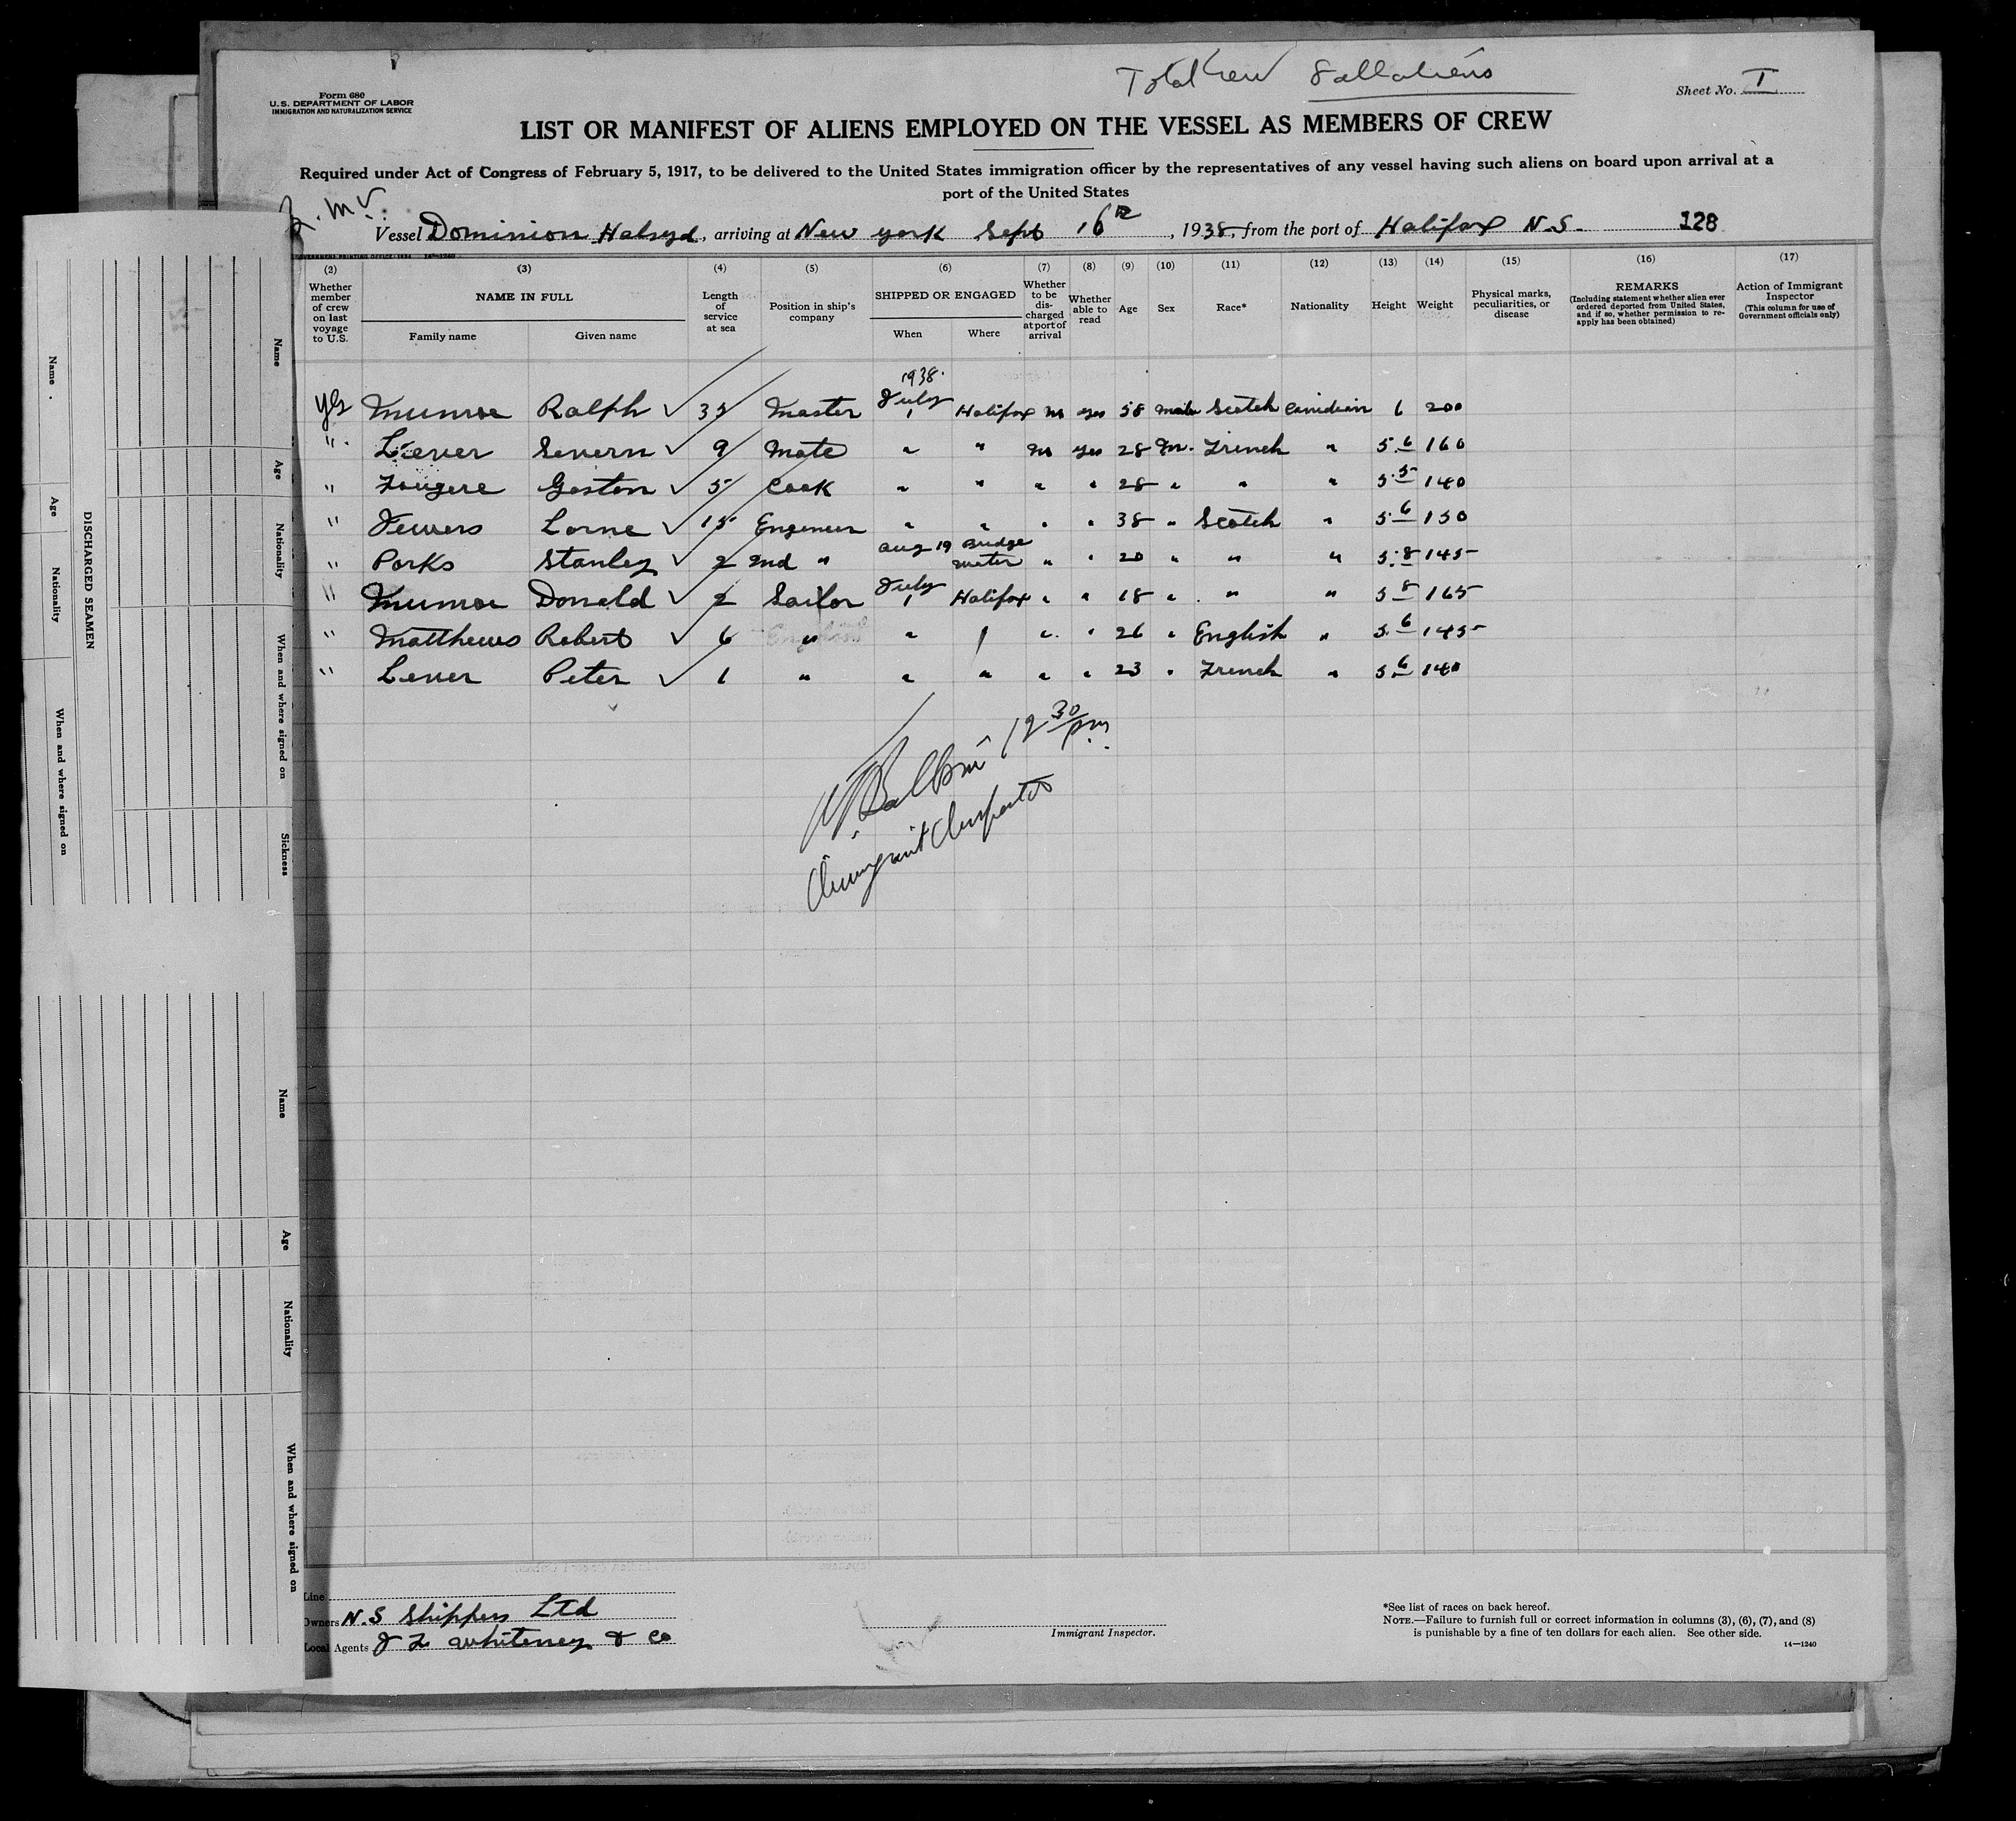 Total Crew 8 all aliens
Form 680
U.S. DEPARTMENT OF LABOR
IMMIGRATION AND NATURALIZATION SERVICE
Sheet No. I
LIST OR MANIFEST OF ALIENS EMPLOYED ON THE VESSEL AS MEMBERS OF CREW
Required under Act of Congress of February 5, 1917, to be delivered to the United States immigration officer by the representatives of any vessel having such aliens on board upon arrival at a
port of the United States
Vessel Dominion Halsyd, arriving at New York Sept 16th, 1938, from the port of Halifax N.S. 128
(2) (3) (4) (5) (6) (7) (8) (9) (10) (11) (12) (13) (14) (15) (16) (17)
Whether member of crew on last voyage to U.S.
NAME IN FULL
Family name Given name
Length of service at sea
Position in ship's company
SHIPPED OR ENGAGED
When Where
Whether to be discharged at port of arrival
Whether able to read
Age
Sex
Race*
Nationality
Height
Weight
Physical marks, peculiarities, or disease
REMARKS
(Including statement whether alien ever ordered deported from United States, and if so, whether permission to re-apply has been obtained)
Action of Immigrant Inspector
(This column for use of Government officials only)
1938.
yes Munroe Ralph ✓ Master July 1 Halifax no yes 58 male Scotch Canidian 6 200
" Lever Severn ✓ 9 Mate " " no yes 28 m. French " 5.6 160
" Fougere Gaston ✓ 5 Cook " " " " 28 " " " 5.5 140
" Fewers Lorne ✓ 15 Engeneer " " " " 38 " Scotch " 5.6 150
" Parks Stanley ✓ 2 2nd " Aug 19 Bridge water " " 20 " " " 5.8 145
" Munroe Donald ✓ 2 Sailor July 1 Halifax " " 18 " " " 5 8 165
" Matthews Robert ✓ 6 " " " " 26 " English " 5.6 145
" Lever Peter ✓ 1 " " " " " 23 " French " 5.6 140
12 30 pm
Immigrant Inspector
Line
Owners N.S Shippers Ltd
Local Agents J F Whiteney & Co
Immigrant Inspector.
*See list of races on back hereof.
NOTE.—Failure to furnish full or correct information in columns (3), (6), (7), and (8)
is punishable by a fine of ten dollars for each alien. See other side.
14—1240
DISCHARGED SEAMEN
Name
Age
Nationality
When and where signed on
Name
Age
Nationality
When and where signed on
Sickness
Name
Age
Nationality
When and where signed on